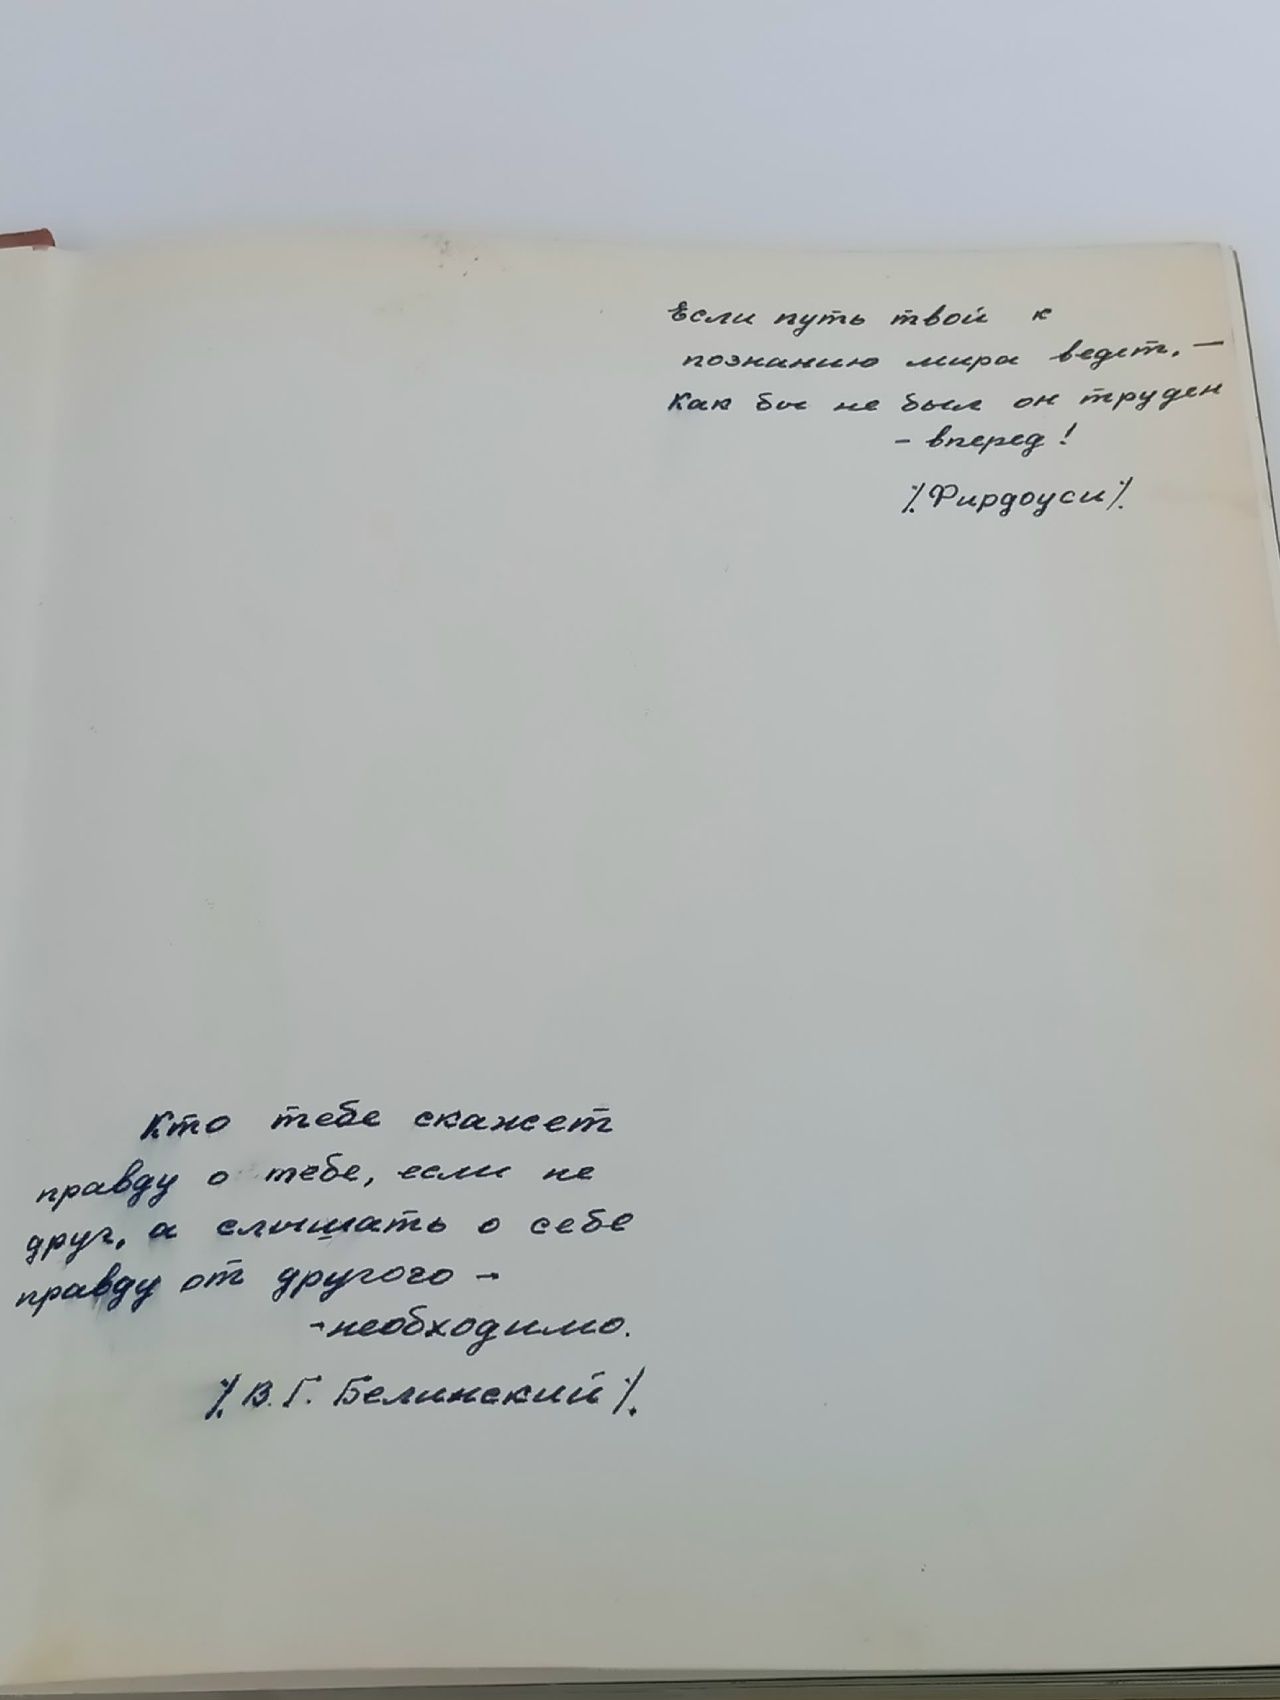 Если путь твой к
познанию мира ведет, —
Как бы не был он труден
- вперед!
/Фирдоуси/
Кто тебе скажет
правду о тебе, если не
друг, а слышать о себе
правду от другого -
-необходимо.
/В.Г. Белинский/